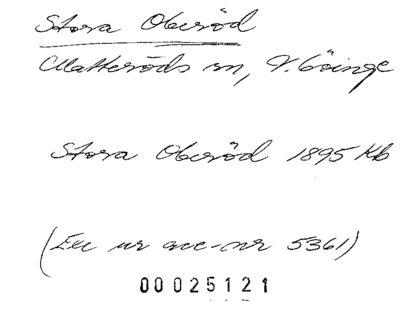 Stora Oberöd
Matteröds sn, V. Göinge
Stora Oberöd 1895 Kb
(Ex ur acc-nr 5361)
00025121